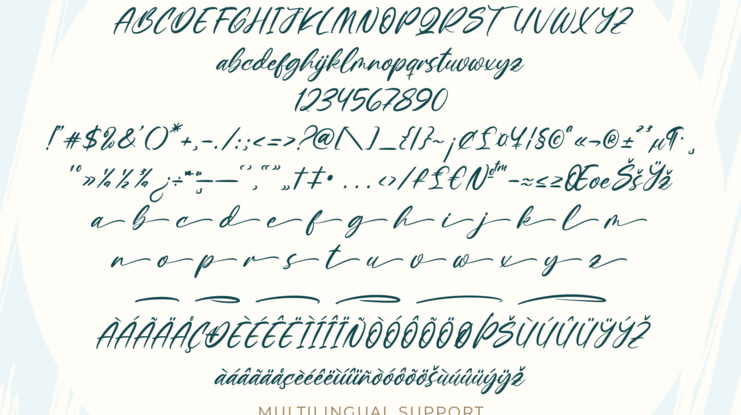 ABCDEFGHIJKLMNOPQRSTUVWXYZ
abcdefghijklmnopqrstuvwxyz
1234567890
!"#$%&'()*+,-./:;<=>?@[\]_{|}~¡¢£¤¥¦§©ª«¬®±²³µ¶·¸
¹º»¼½¾¿÷
†‡•...‹›/ƒ£€№™−≈≤≥ŒœŠšŸž
a b c d e f g h i j k l m
n o p r s t u v w x y z
ÀÁÂÃÄÅÇÐÈÉÊËÌÍÎÏÑÒÓÔÕÖØÞŠÙÚÛÜŸÝŽ
àáâãäåçèéêëìíîïñòóôõöšùúûüýÿž
MULTILINGUAL SUPPORT